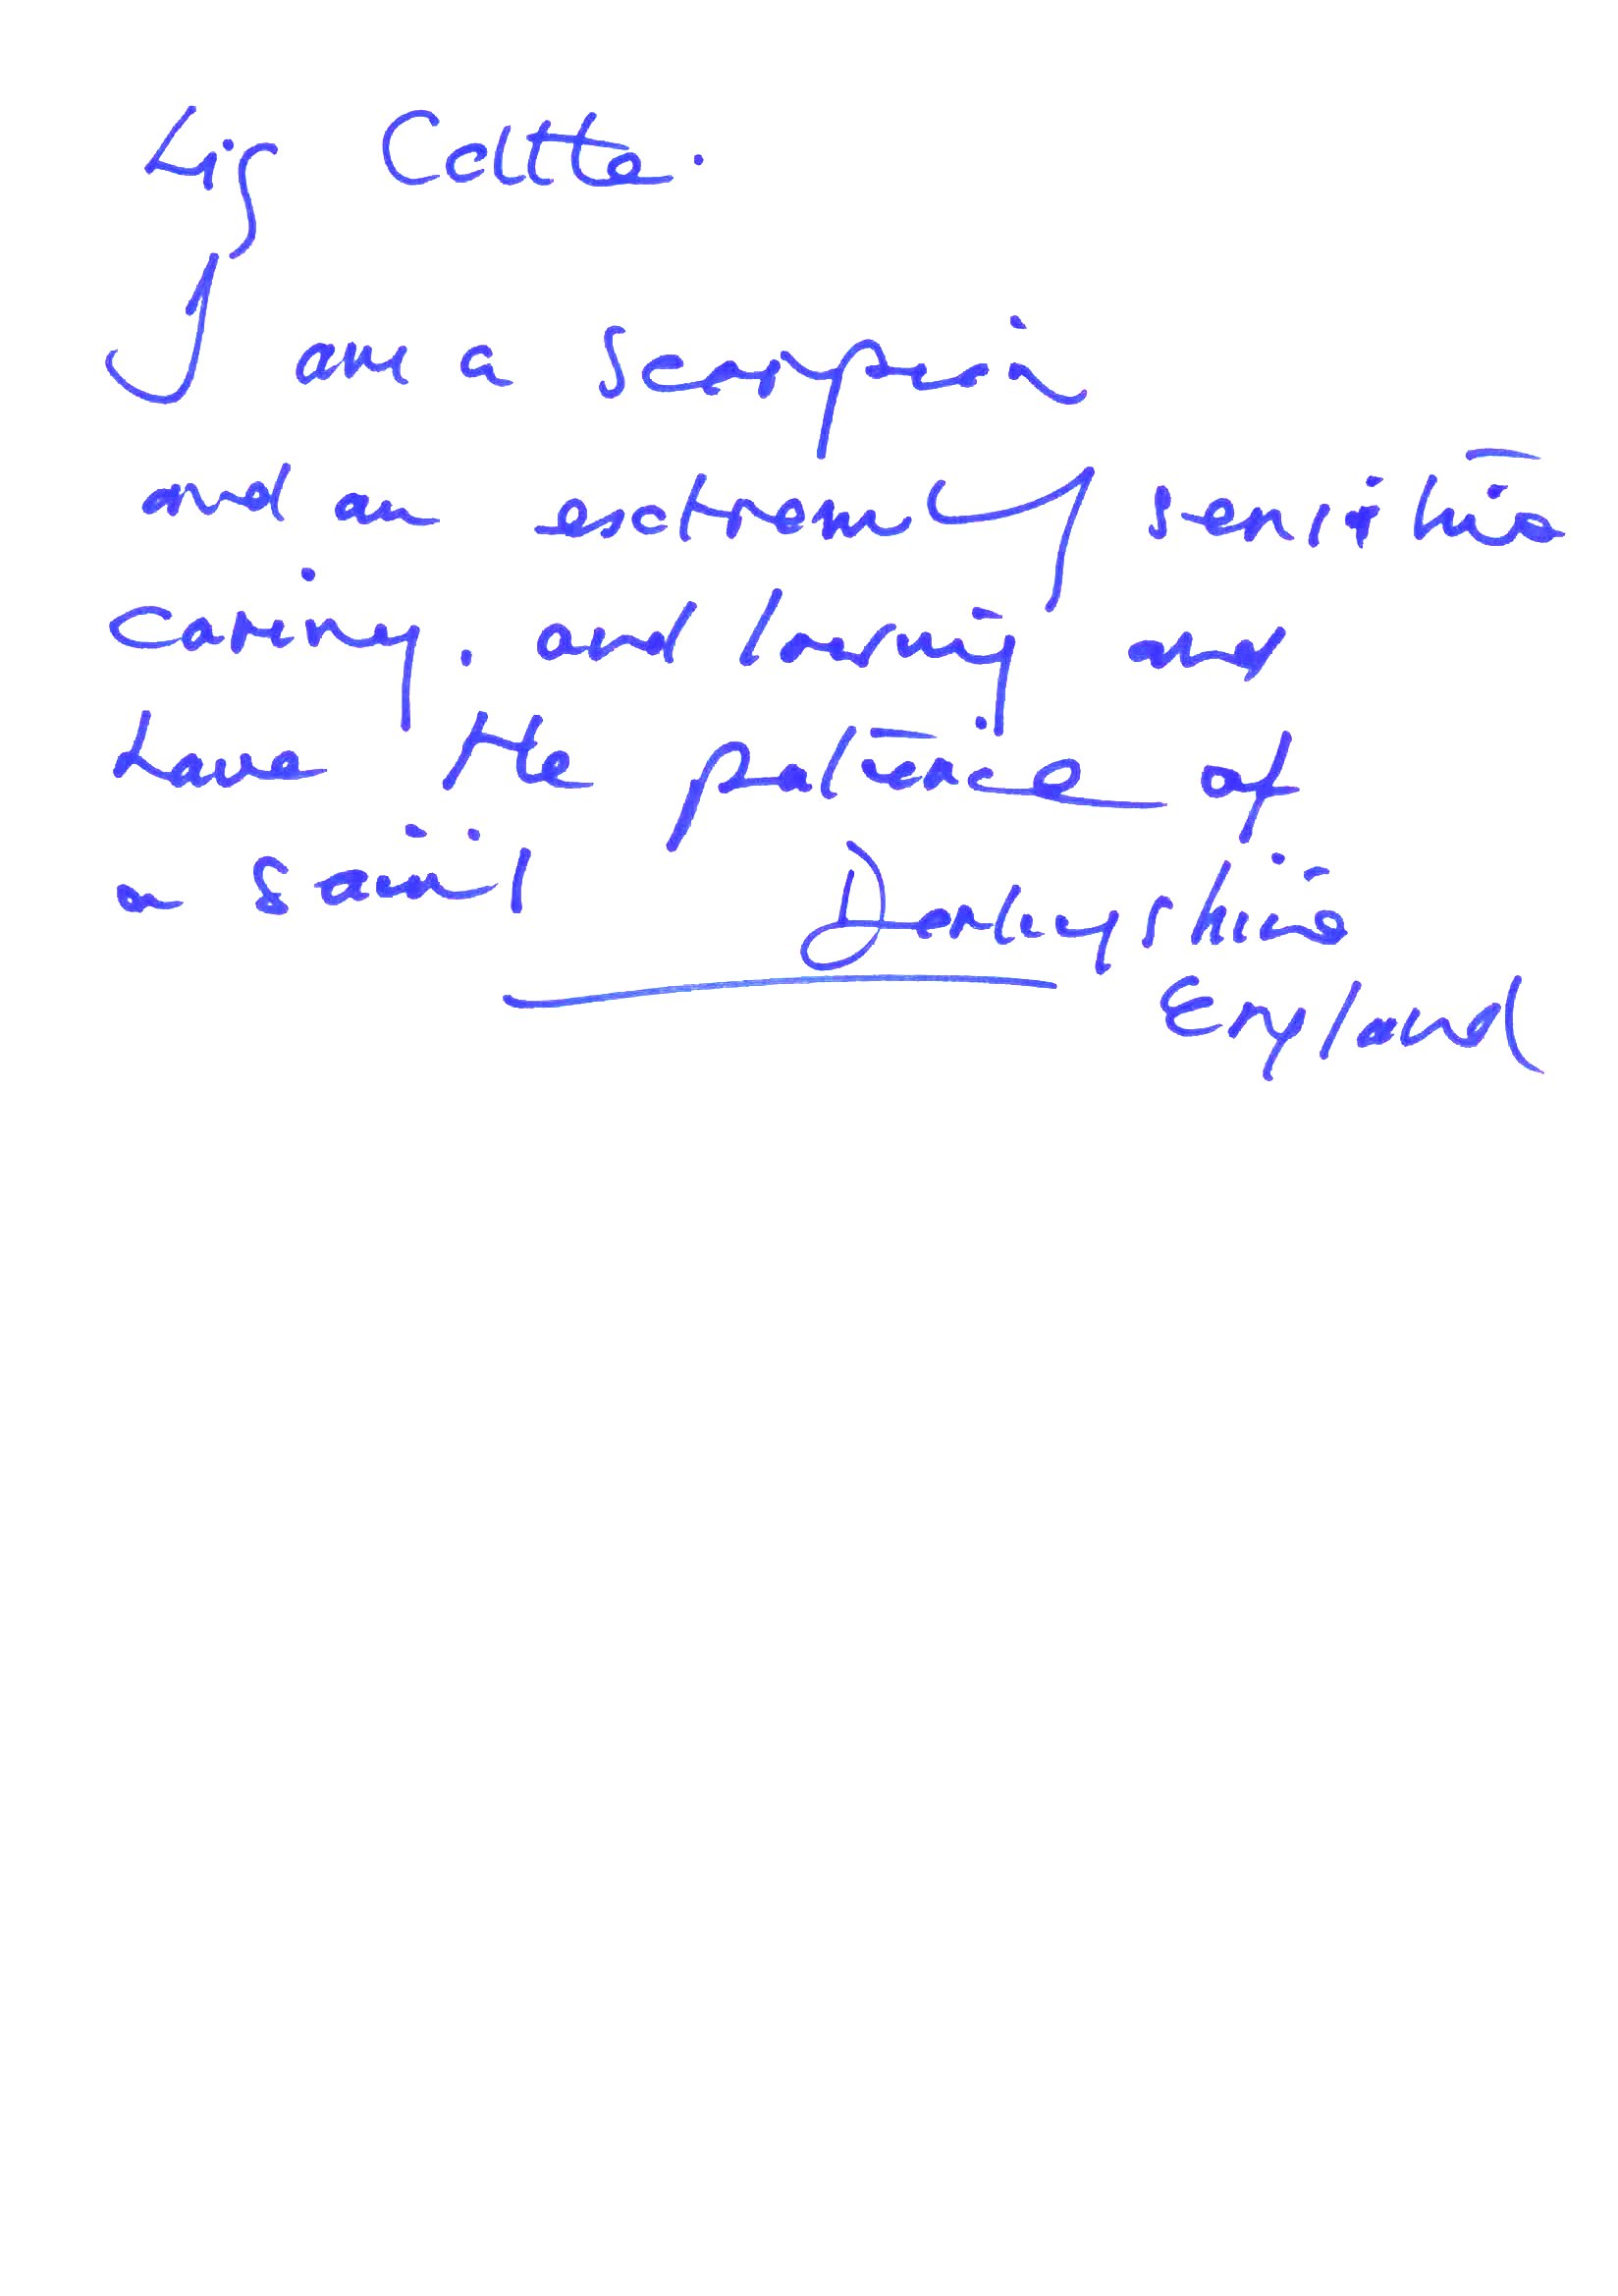 I am a scorpion
and an extremely sensitive
caring. and loving and
have the patience of
a saint
Derbyshire
England